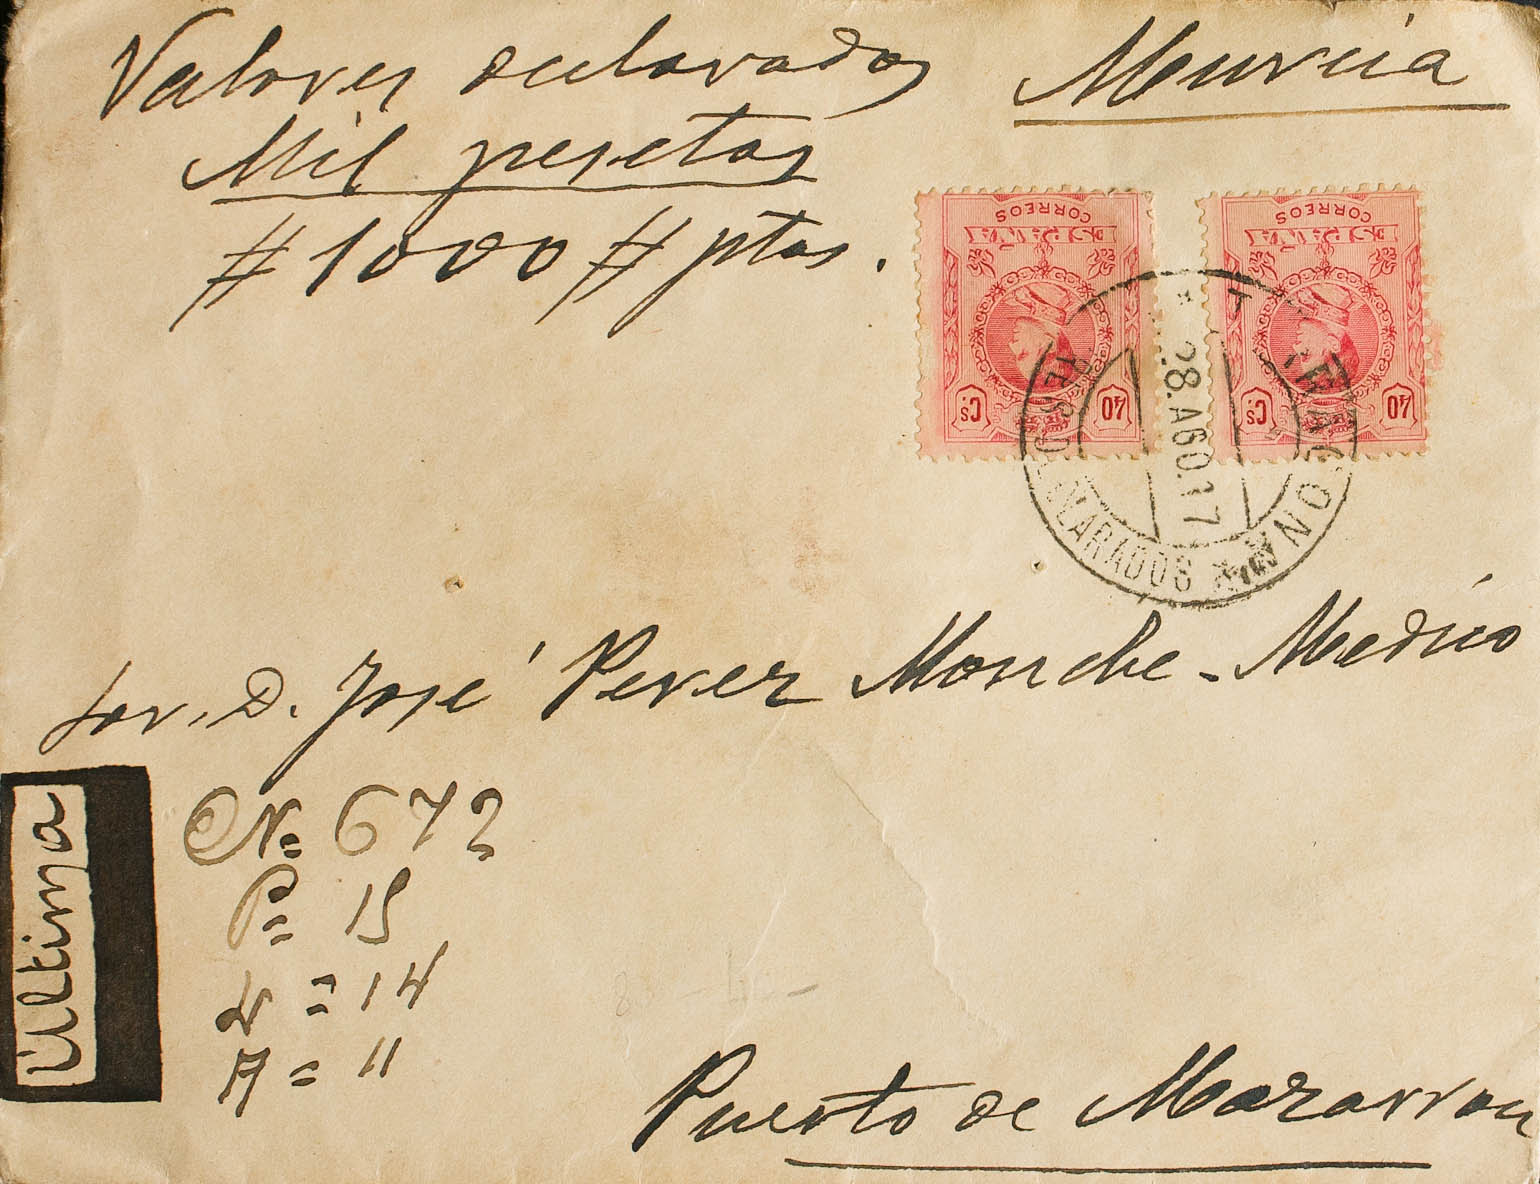 Valores declarados
Murcia
Mil pesetas
# 1000 # ptas.
CORREOS
ESPAÑA
40 Cs
CORREOS
ESPAÑA
40 Cs
TARRAGONA
28.AGO.17
DECLARADOS
Sor. D. José Perez Monche - Medico
Última
No= 672
P= 15
L= 14
A= 11
Puerto de Mazarron